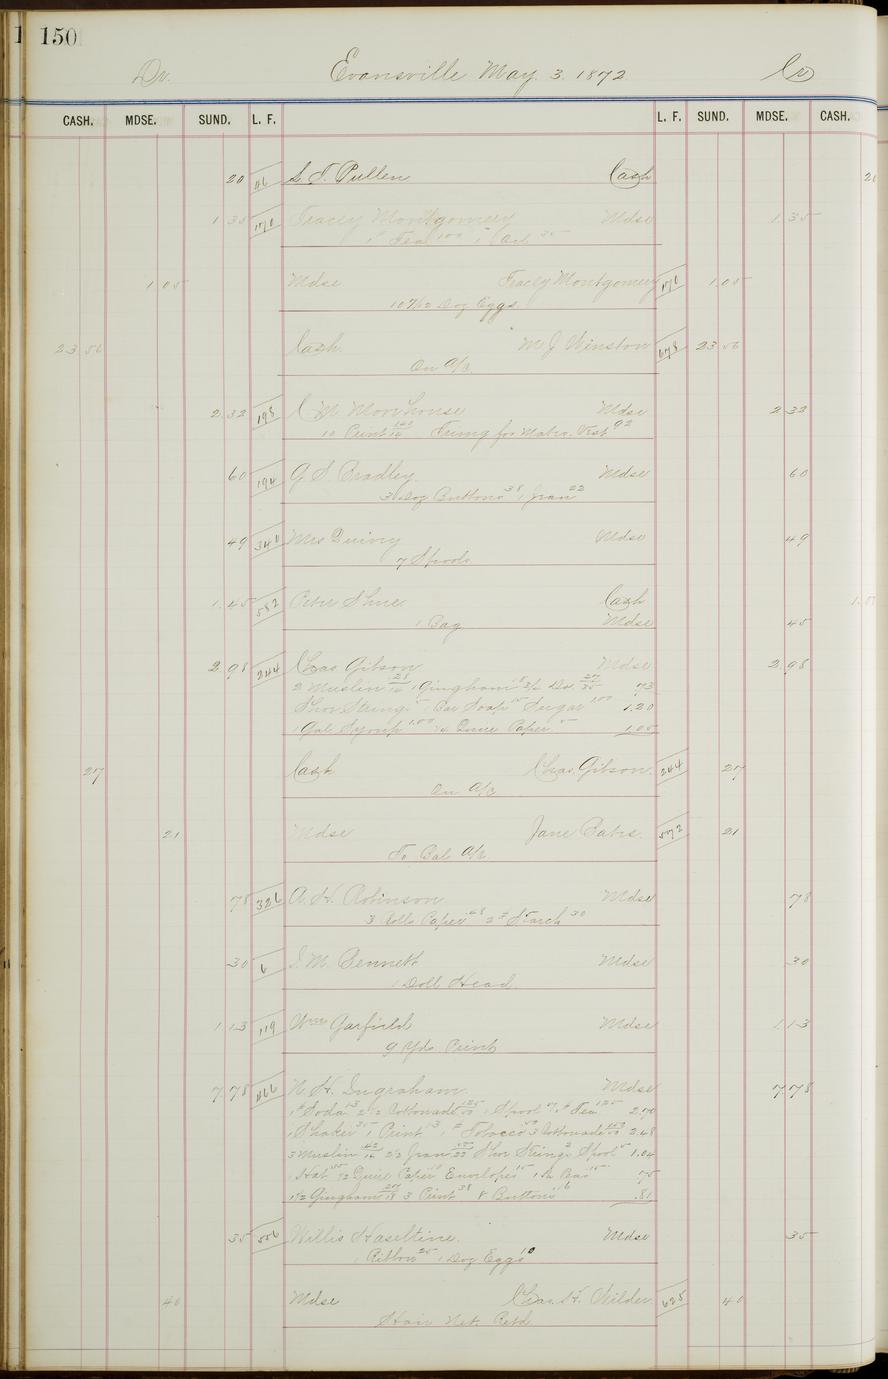 150
Dr. Evansville May. 3. 1872 Cr
CASH. MDSE. SUND. L. F. L. F. SUND. MDSE. CASH.
20 116 S. T. Pullen Cash 20
1 35 170 Tracey Montgomery Mdse 1 35
1# Tea 1.00 35
1 05 Mdse Tracey Montgomery 170 1 05
10 7/12 Doz Eggs
23 56 Cash M J Winston 678 23 56
On a/c
2 32 198 C M Moorhouse Mdse 2 32
10 Print 140/14 Trimg for Vest 92
60 194 G S. Bradley Mdse 60
3 Doz Buttons 38 1 Jean 22
49 340 Mrs Quivey Mdse 49
7 Spools
1 45 582 Peter Shue Cash 1.
1 Bag Mdse 45
2 98 244 Chas Gibson Mdse 2 98
2 Muslin 28/14 1 Gingham 18 Do 27/35 73
Shoe Strings 5 1 Bar Soap 15 Sugar 1.00 1.20
1 Gal Syrup 1.00 1/4 Quire Paper 5 1.05
27 Cash Chas. Gibson. 244 27
On a/c
21 Mdse Jane Bates. 572 21
To Bal a/c
78 326 A. H. Robinson Mdse 78
3 Rolls Paper 48 2# Starch 30
30 6 I. M. Bennett Mdse 30
1 Doll Head
1 13 119 Wm Garfield Mdse 1 13
9 Yds Print
7 78 466 N. H. Ingraham Mdse 7 78
1# Soda 13 2 1/2 Cottonade 125/50 1 Spool 7 1# Tea 125 2.70
1 Shaker 35 1 Print 13 1# Tobacco 3 Cottonade 150/50 2.48
3 Muslin 42/14 2 1/2 Jean 55/22 Shoe Strings 2 Spool 5 1.04
1 Hat 1/2 Quire Paper 10 Envelopes 15 75
1 1/2 Gingham 27/18 3 Print 38 8 Buttons 16 .81
35 556 Willis Haseltine. Mdse 35
1 Ribbon 25 1 Doz Eggs 10
40 Mdse Chas. H. Wilder 628 40
Hair Net. Retd